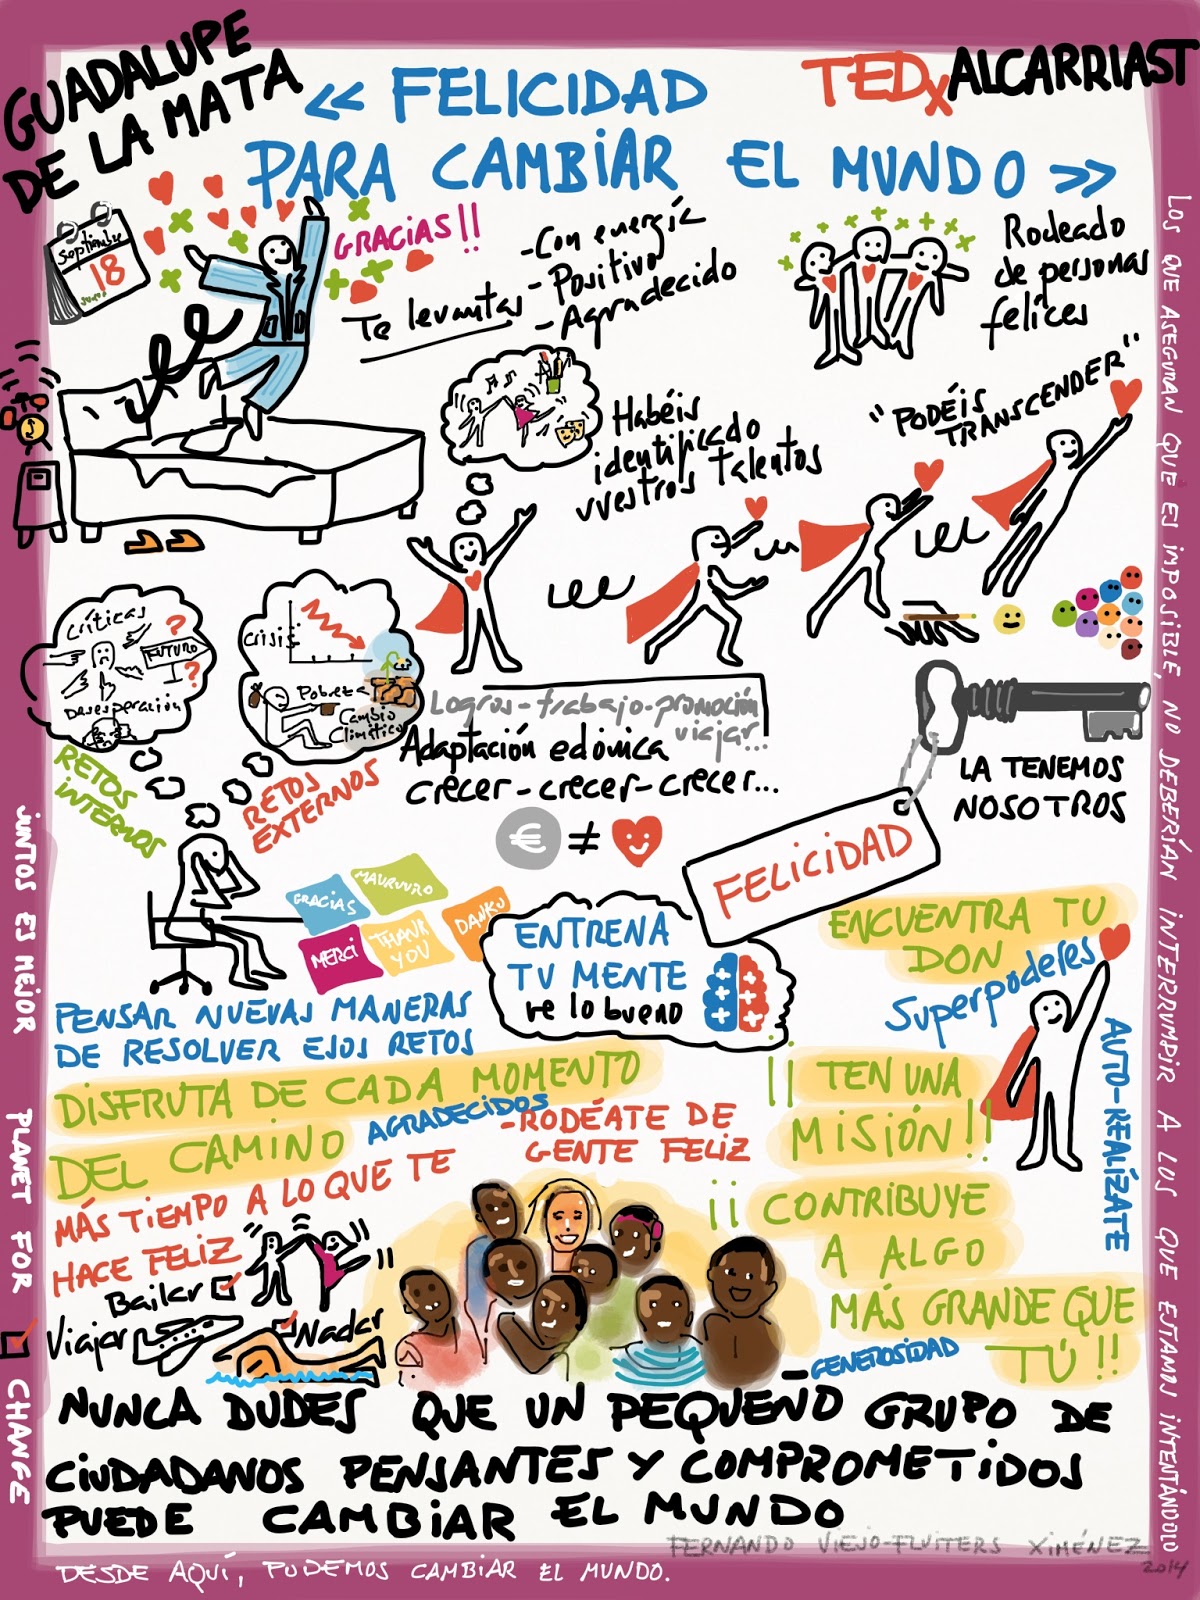 GUADALUPE
DE LA MATA
« FELICIDAD
PARA CAMBIAR EL MUNDO »
TEDxALCARRIAST
Septiembre
18
GRACIAS!!
Te levantas
- Con energía
- Positivo
- Agradecido
Rodeado
de personas
felices
Habéis
identificado
vuestros talentos
"PODÉIS
TRANSCENDER"
Críticas
?
FUTURO
?
Desesperación
CRISIS
Pobreza
Cambio
Climático
RETOS
INTERNOS
RETOS
EXTERNOS
Logros-trabajo-promoción
viajar...
Adaptación edónica
crecer-crecer-crecer...
€ ≠
LA TENEMOS
NOSOTROS
FELICIDAD
GRACIAS
MAURUURO
MERCI
THANK
YOU
DANKU
ENTRENA
TU MENTE
ve lo bueno
ENCUENTRA TU
DON
Superpoderes
AUTO-REALÍZATE
PENSAR NUEVAS MANERAS
DE RESOLVER ESOS RETOS
DISFRUTA DE CADA MOMENTO
DEL CAMINO
AGRADECIDOS
-RODÉATE DE
GENTE FELIZ
MÁS TIEMPO A LO QUE TE
HACE FELIZ
Bailar
Viajar
Nadar
¡¡ TEN UNA
MISIÓN!!
¡¡ CONTRIBUYE
A ALGO
MÁS GRANDE QUE
TÚ!!
GENEROSIDAD
NUNCA DUDES QUE UN PEQUEÑO GRUPO DE
CIUDADANOS PENSANTES Y COMPROMETIDOS
PUEDE CAMBIAR EL MUNDO
FERNANDO VIEJO-FLUITERS XIMÉNEZ
2014
DESDE AQUÍ, PODEMOS CAMBIAR EL MUNDO.
JUNTOS ES MEJOR PLANET FOR CHANGE
LOS QUE ASEGURAN QUE ES IMPOSIBLE, NO DEBERÍAN INTERRUMPIR A LOS QUE ESTAMOS INTENTÁNDOLO